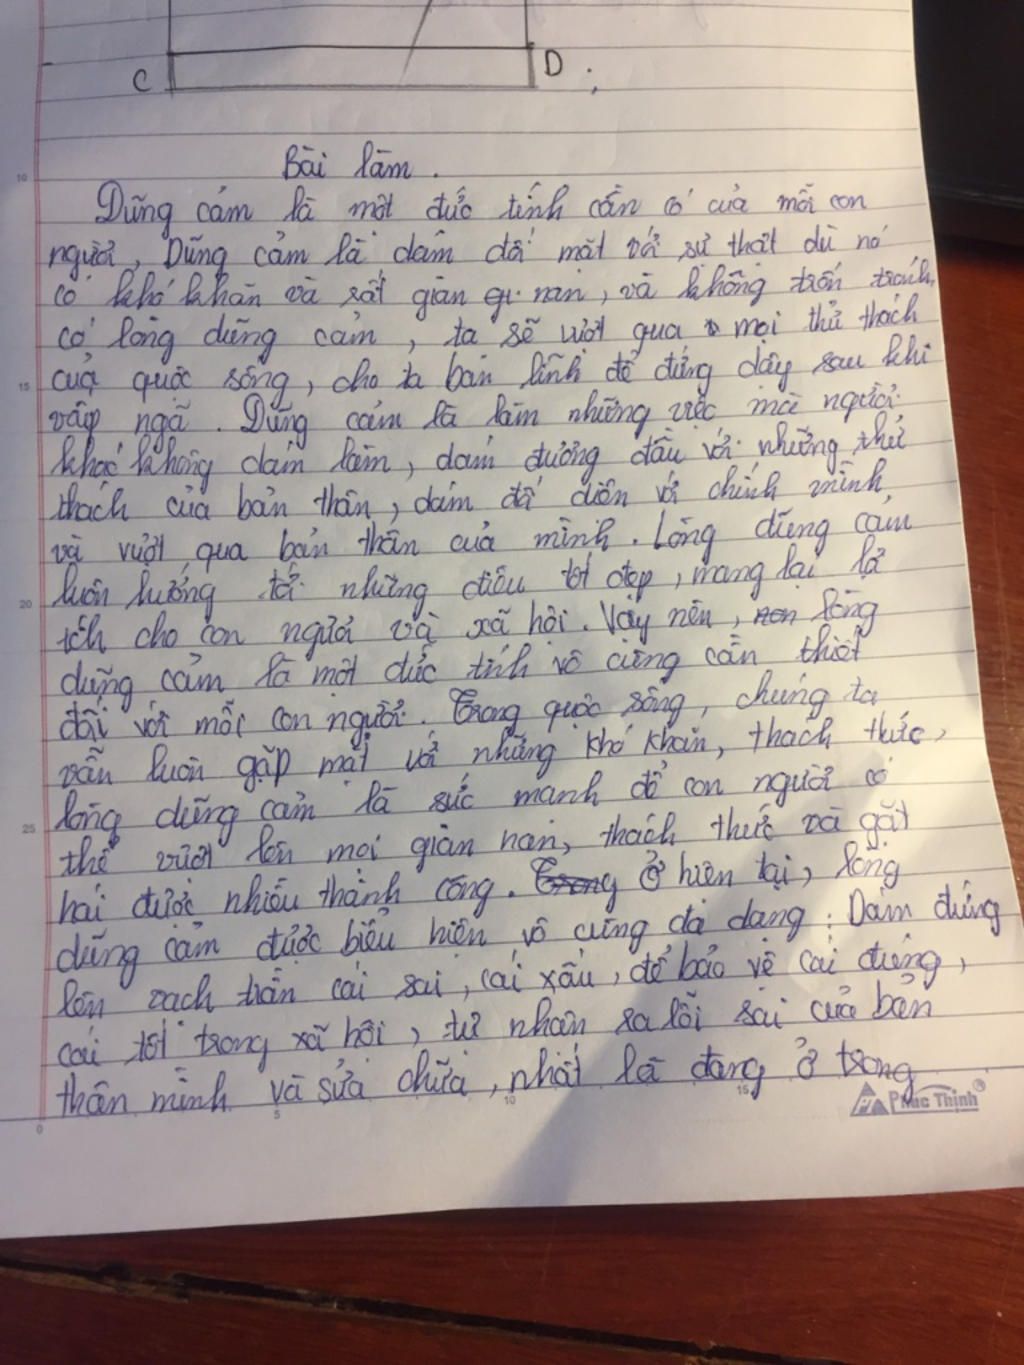 C D ;
Bài làm .
Dũng cảm là một đức tính cần có của mỗi con
người, Dũng cảm là dám đối mặt với sự thật dù nó
có khó khăn và rất gian nan, và không trốn tránh,
có lòng dũng cảm, ta sẽ vượt qua mọi thử thách
của quộc sống, cho ta bản lĩnh để đứng dậy sau khi
vấp ngã. Dũng cảm là làm những việc mà người
khác không dám làm, dám đương đầu với những thử
thách của bản thân, dám đối diện với chính mình,
và vượt qua bản thân của mình. Lòng dũng cảm
luôn hướng tới những điều tốt đẹp, mang lại lợi
ích cho con người và xã hội. Vậy nên, lòng
dũng cảm là một đức tính vô cùng cần thiết
đối với mỗi con người. Trong quộc sống, chúng ta
vẫn luôn gặp mặt với những khó khăn, thách thức,
lòng dũng cảm là sức mạnh để con người có
thể vượt lên mọi gian nan, thách thức và gặt
hái được nhiều thành công. Ở hiện tại, lòng
dũng cảm được biểu hiện vô cùng đa dạng: Dám đứng
lên vạch trần cái sai, cái xấu, để bảo vệ cái đúng,
cái tốt trong xã hội, tự nhận ra lỗi sai của bản
thân mình và sửa chữa, nhất là đang ở trong
Phúc Thịnh
10
15
20
25
0 5 10 15